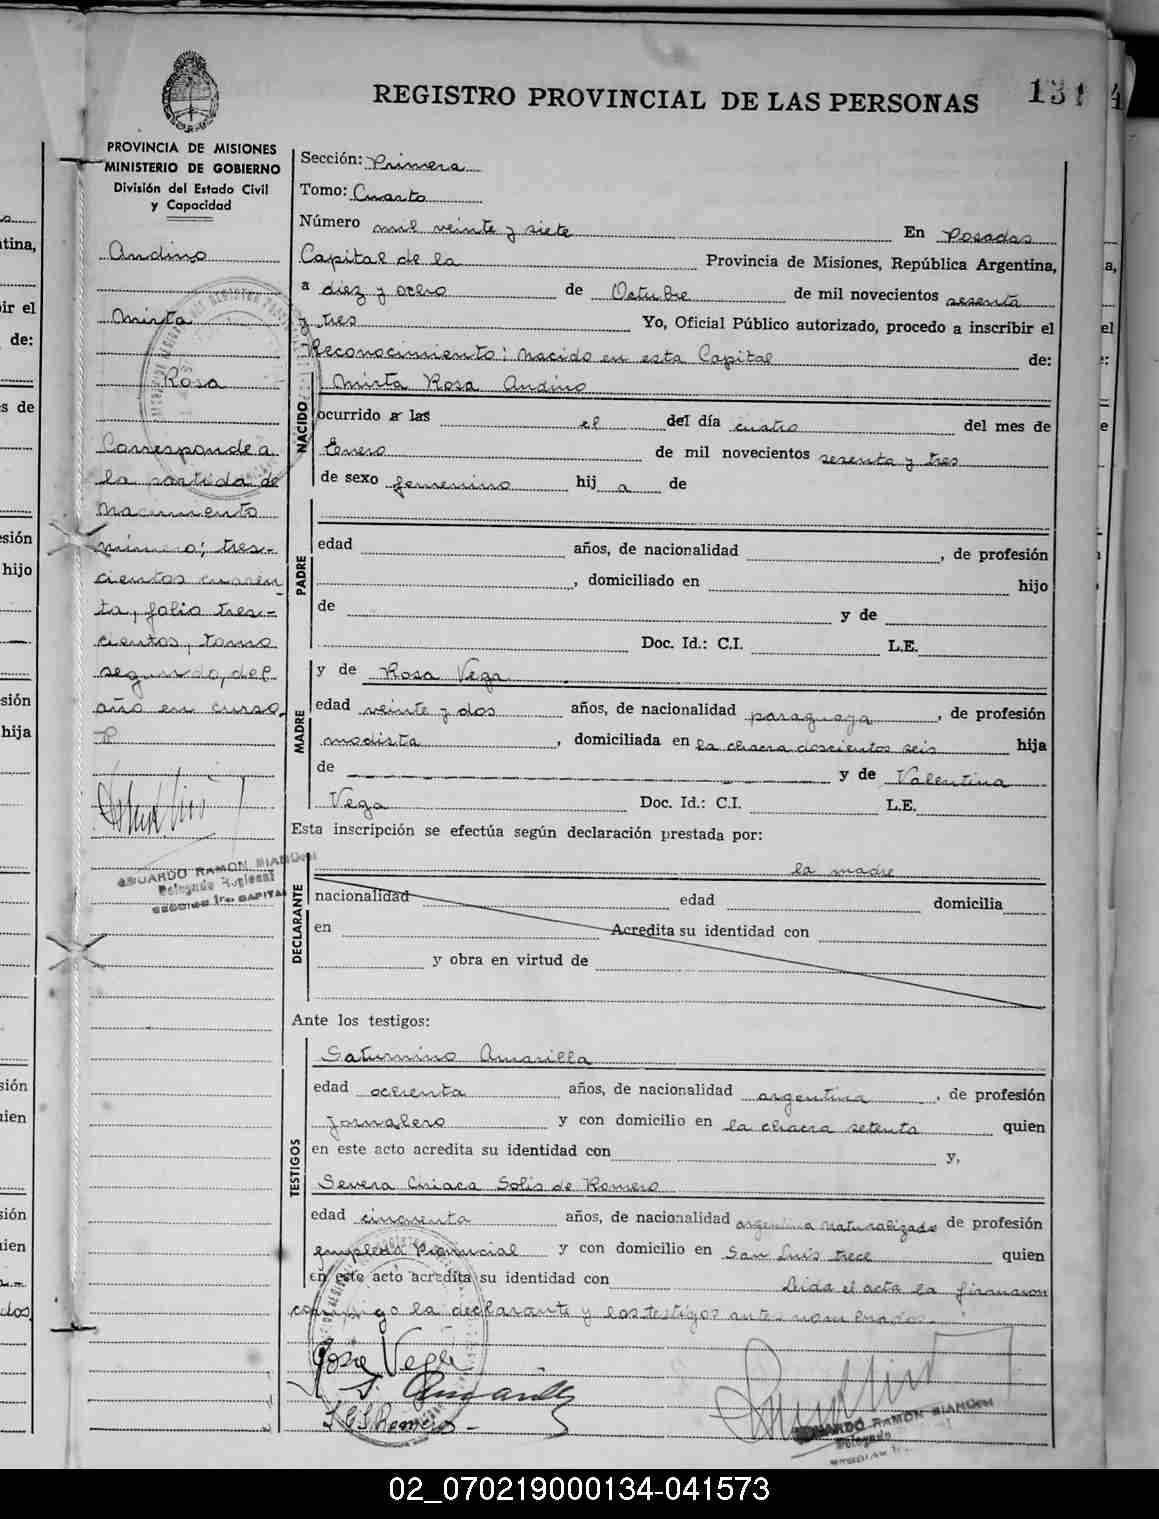 REGISTRO PROVINCIAL DE LAS PERSONAS
131
4
PROVINCIA DE MISIONES
MINISTERIO DE GOBIERNO
División del Estado Civil
y Capacidad
Andino
Mirta
Rosa
Corresponde a
la partida de
nacimiento
número; tres-
cientos cuaren
ta, folio tres-
cientos, tomo
segundo, del
año en curso.
EDUARDO RAMON BIANCHI
Delegado Regional
SECCION 1ra. CAPITAL
Sección: Primera
Tomo: Cuarto
Número mil veinte y siete En Posadas
Capital de la Provincia de Misiones, República Argentina,
a diez y ocho de Octubre de mil novecientos sesenta
y tres Yo, Oficial Público autorizado, procedo a inscribir el
Reconocimiento; nacido en esta Capital de:
NACIDO
Mirta Rosa Andino
ocurrido a las el del día cuatro del mes de
Enero de mil novecientos sesenta y tres
de sexo femenino hij a de
PADRE
edad años, de nacionalidad , de profesión
, domiciliado en hijo
de y de
Doc. Id.: C.I. L.E.
MADRE
y de Rosa Vega
edad veinte y dos años, de nacionalidad paraguaya , de profesión
modista , domiciliada en la chacra doscientos seis hija
de y de Valentina
Vega Doc. Id.: C.I. L.E.
Esta inscripción se efectúa según declaración prestada por:
DECLARANTE
la madre
nacionalidad edad domicilia
en Acredita su identidad con
y obra en virtud de
Ante los testigos:
TESTIGOS
Saturnino Amarilla
edad ochenta años, de nacionalidad argentina , de profesión
Jornalero y con domicilio en la chacra setenta quien
en este acto acredita su identidad con y,
Severa Ciriaca Solis de Romero
edad cincuenta años, de nacionalidad argentina naturalizada de profesión
empleada Provincial y con domicilio en San Luis trece quien
en este acto acredita su identidad con Leida el acta la firmaron
conmigo la declarante y los testigos antes nombrados.
Rosa Vega
S. Amarilla
S C S Romero
EDUARDO RAMON BIANCHI
Delegado
02_070219000134-041573